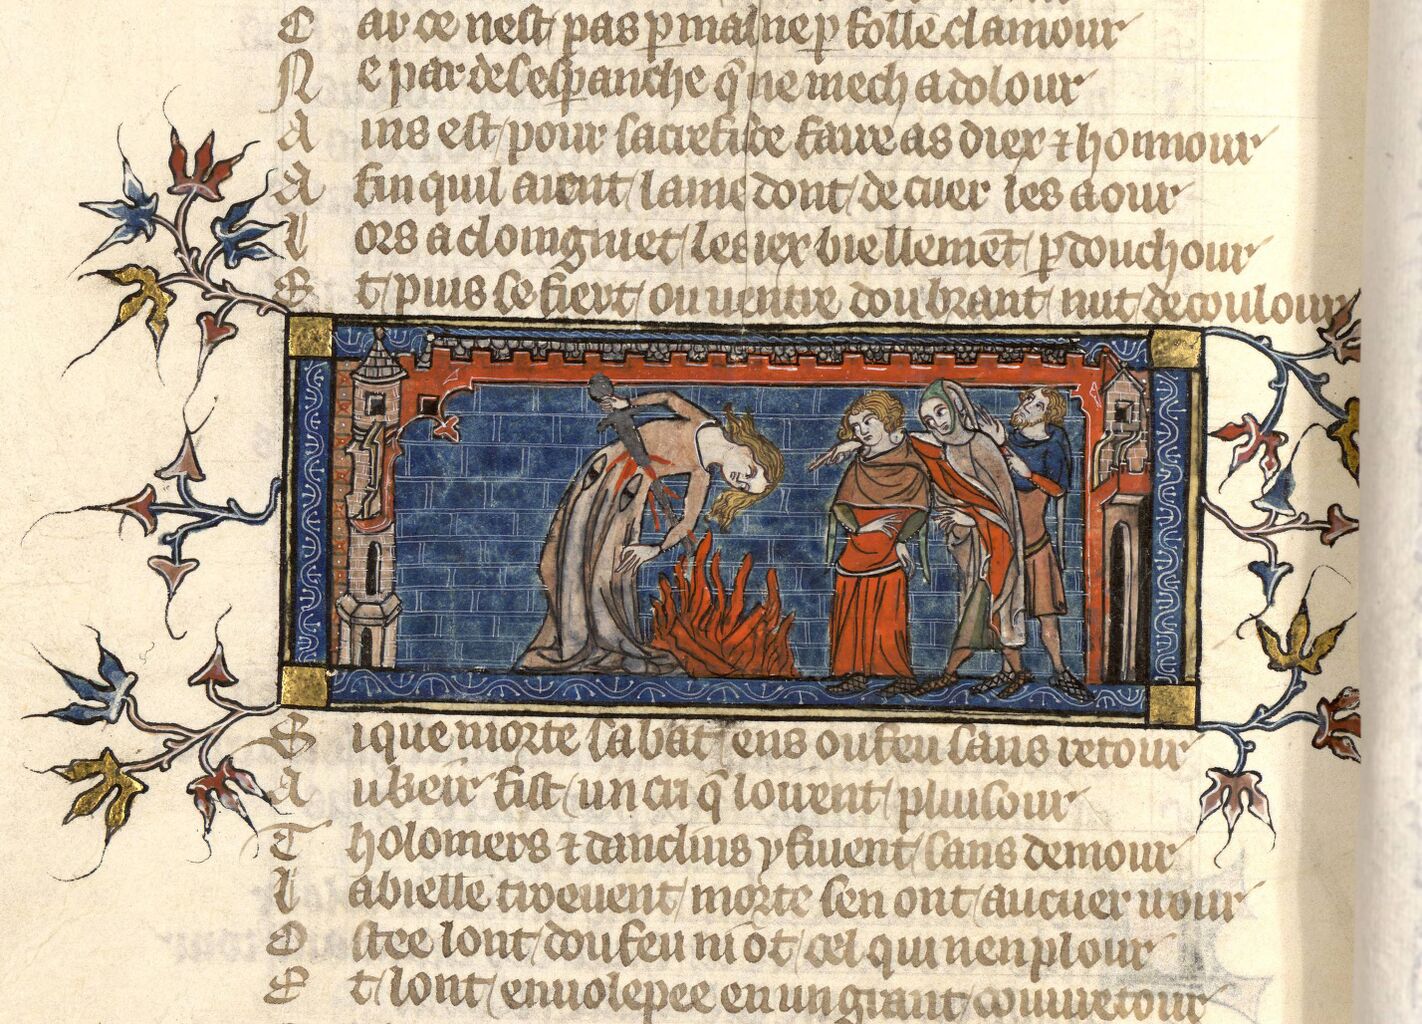 C ar ce nest pas p mal ne p folle clamour
N e par desespanche q̃ ne mech a dolour
A ins est pour sacrefice faire as diex ⁊ honnour
A fin quil aient lame dont de cuer les aour
L ors a cloingniet les iex biellemẽt p douchour
E t puis se fiert ou ventre dou brant nut de coulour
S i que morte sabat ens ou feu sans retour
A ukeir fist un cri q̃ loirent pluisour
T holomers ⁊ danclins y fuient sans demour
L a bielle treuvent morte sen ont au cuer irour
O stee lont dou feu ni ot cel qui nen plour
E t lont envolepee en un grant couvretour